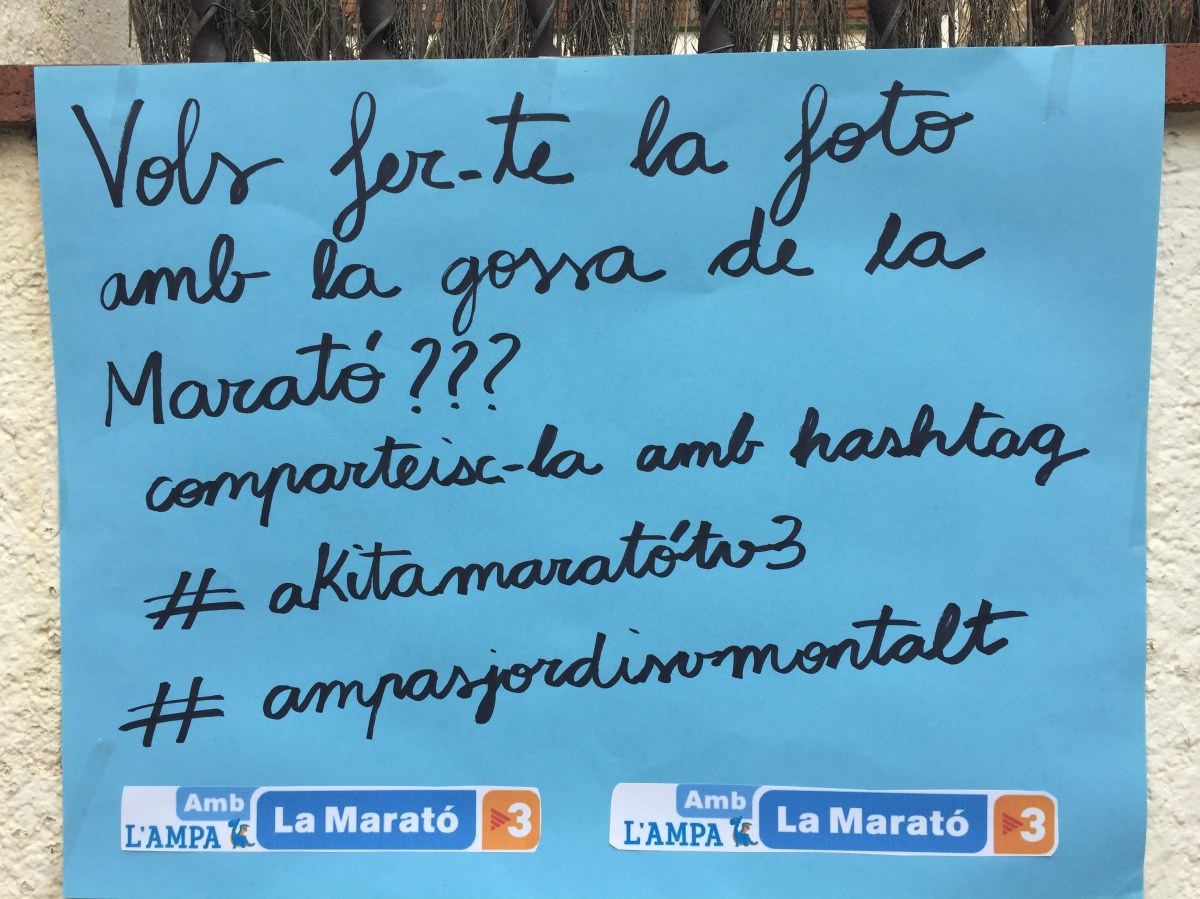 Vols fer-te la foto
amb la gossa de la
Marató???
comparteisc-la amb hashtag
# akitamaratótv3
# ampasjordisvmontalt
Amb
L'AMPA La Marató 3
Amb
L'AMPA La Marató 3